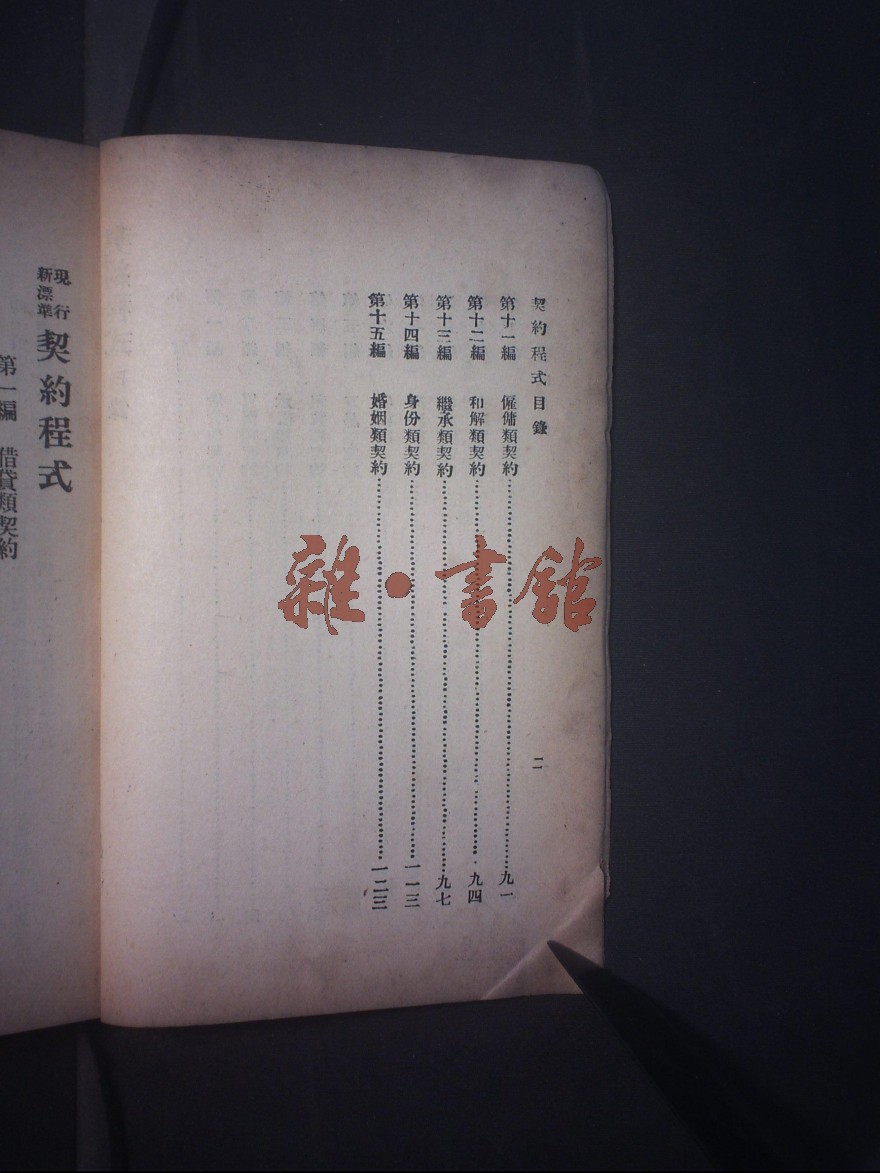 契約程式目錄
二
第十一編 僱傭類契約 九一
第十二編 和解類契約 九四
第十三編 繼承類契約 九七
第十四編 身份類契約 一一三
第十五編 婚姻類契約 一二三
現行
新漂準
契約程式
第一編 借貸類契約
雜·書館